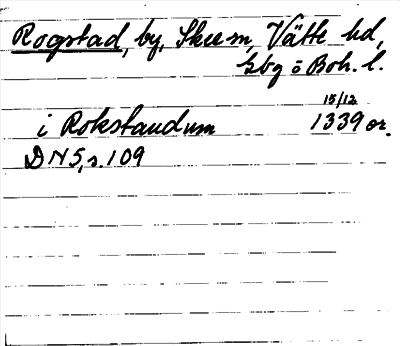 Rogstad, by, Skee sn, Vätte hd,
Gbg o Boh. l.
15/12
i Rokstaudum 1339 or.
DN 5, s. 109